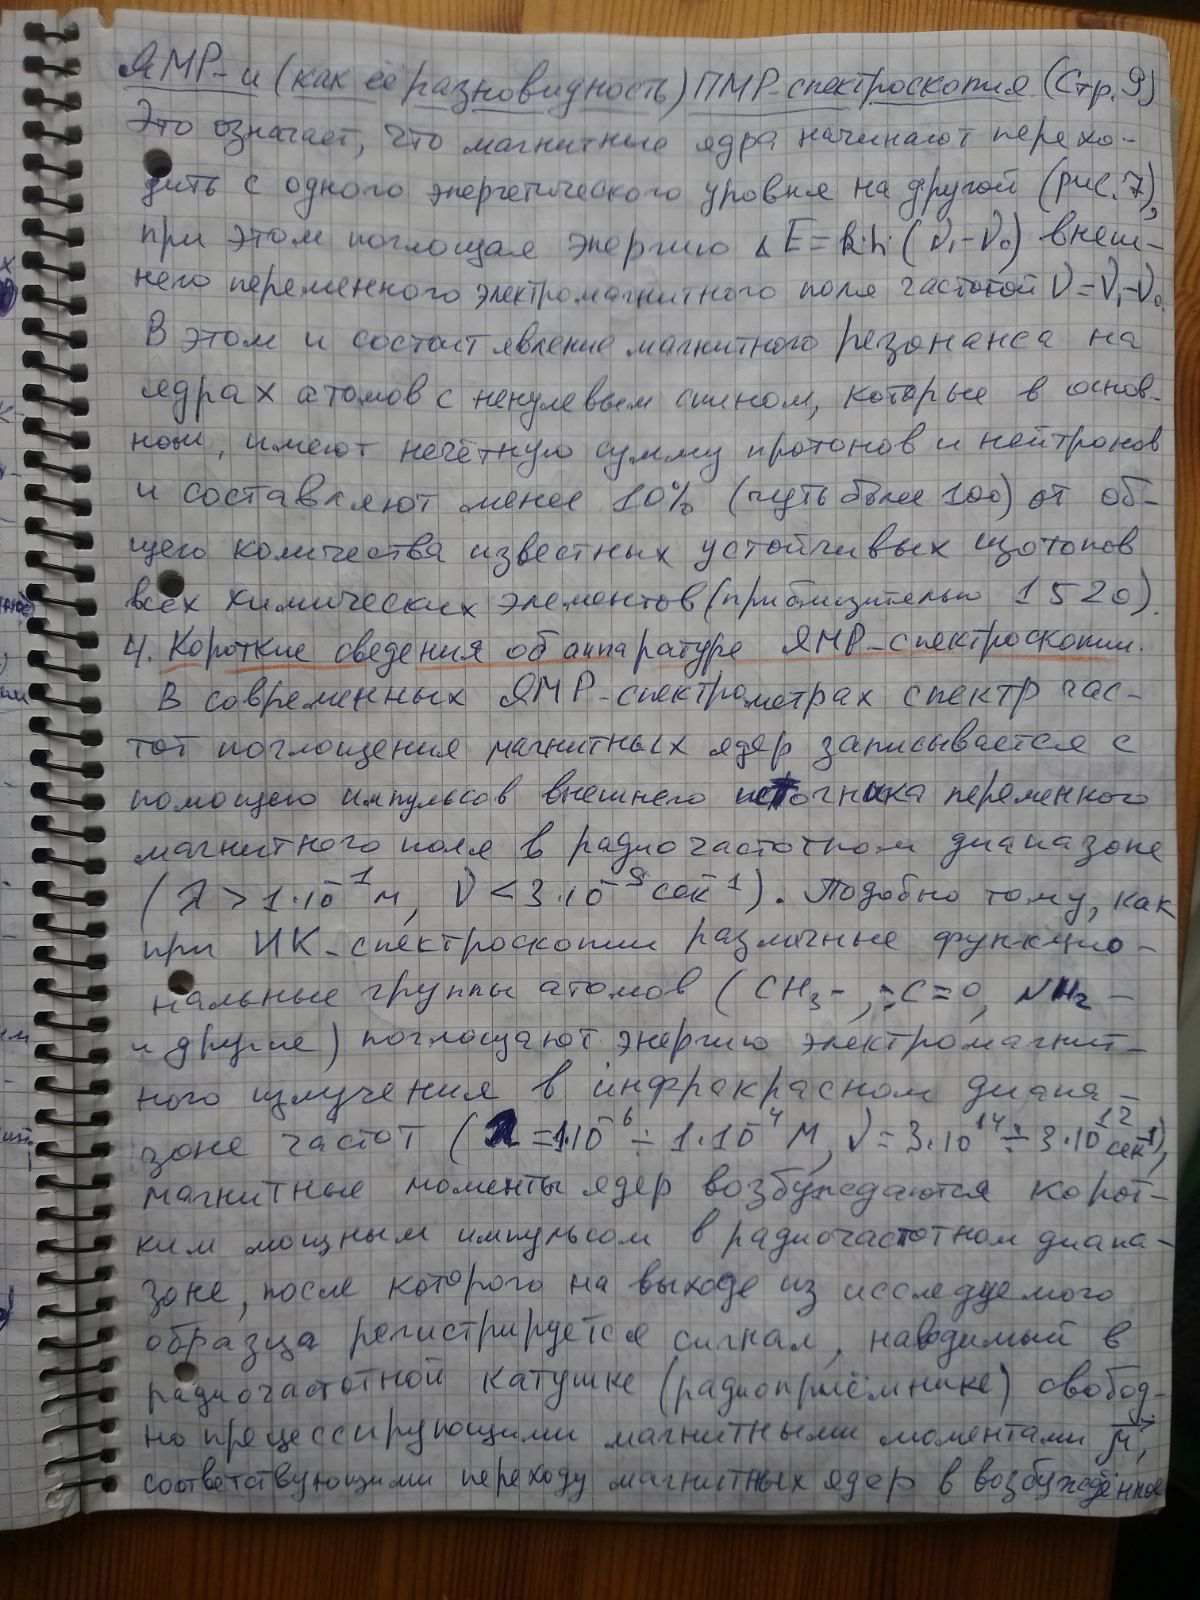 ЯМР- и (как её разновидность) ПМР-спектроскопия (Стр.9)
Это означает, что магнитные ядра начинают перехо-
дить с одного энергетического уровня на другой (рис.7),
при этом поглощая энергию ΔE = h·(ν₁-ν₀) внеш-
него переменного электромагнитного поля частотой ν=ν₁-ν₀.
В этом и состоит явление магнитного резонанса на
ядрах атомов с ненулевым спином, которые в основ-
ном, имеют нечётную сумму протонов и нейтронов
и составляют менее 10% (чуть более 100) от об-
щего количества известных устойчивых изотопов
всех химических элементов (приблизительно 1520).
4. Короткие сведения об аппаратуре ЯМР-спектроскопии.
В современных ЯМР-спектрометрах спектр час-
тот поглощения магнитных ядер записывается с
помощью импульсов внешнего источника переменного
магнитного поля в радиочастотном диапазоне
(λ > 1·10⁻¹ м, ν < 3·10⁻⁹ сек⁻¹). Подобно тому, как
при ИК-спектроскопии различные функцио-
нальные группы атомов (CH₃-, =C=O, NH₂-
и другие) поглощают энергию электромагнит-
ного излучения в инфракрасном диапа-
зоне частот (λ=1·10⁻⁶ ÷ 1·10⁻⁴ м, ν = 3·10¹⁴ ÷ 3·10¹² сек⁻¹),
магнитные моменты ядер возбуждаются корот-
ким мощным импульсом в радиочастотном диапа-
зоне, после которого на выходе из исследуемого
образца регистрируется сигнал, наводимый в
радиочастотной катушке (радиоприёмнике) свобод-
но прецессирующими магнитными моментами μ⃗,
соответствующими переходу магнитных ядер в возбуждённое